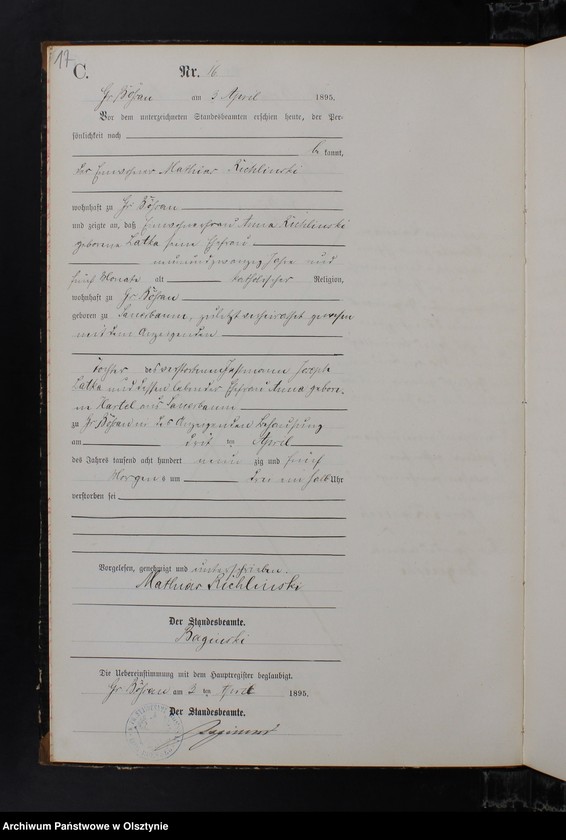 17
C.
Nr. 16
Gr Bößau am 3 April 1895.
Vor dem unterzeichneten Standesbeamten erschien heute, der Per-
sönlichkeit nach
be kannt,
der Einwohner Mathias Kichlinski
wohnhaft zu Gr Bößau
und zeigte an, daß Einwohnerfrau Anna Kichlinski
geborene Latka seine Ehefrau
neunundzwanzig Jahre und
fünf Monate alt katholischer Religion,
wohnhaft zu Gr Bößau
geboren zu Sauerbaum, zuletzt verheirathet gewesen
mit dem Anzeigenden
Tochter des verstorbenen Joseph
Latka und dessen lebender Ehefrau Anna gebore-
ne Hartel aus Sauerbaum
zu Gr Bößau in des Anzeigenden Behausung
am drit ten April
des Jahres tausend acht hundert neun zig und fünf
Morgens um drei ein halb Uhr
verstorben sei
Vorgelesen, genehmigt und unterschrieben.
Mathias Kichlinski
Der Standesbeamte.
Baginski
Die Uebereinstimmung mit dem Hauptregister beglaubigt.
Gr Bößau am 3 ten April 1895.
Der Standesbeamte.
Baginski
Archiwum Państwowe w Olsztynie